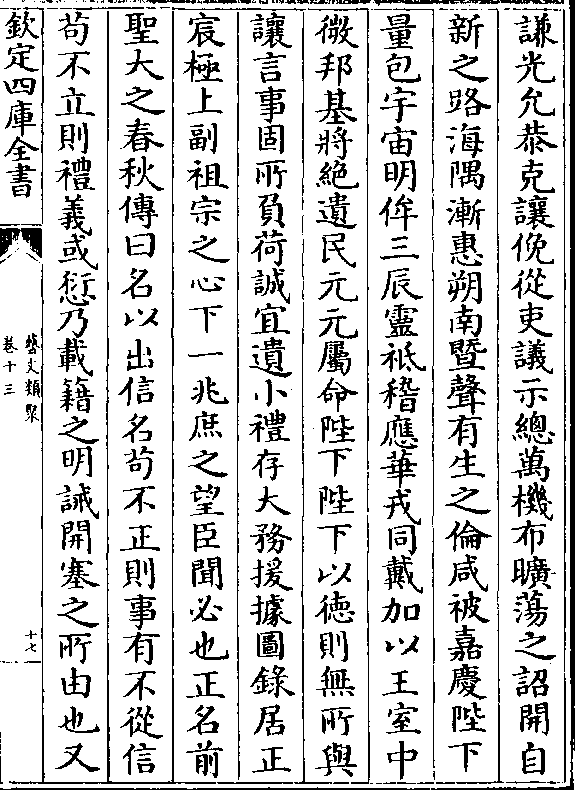 謙光允恭克讓俛從吏議示總萬機布曠蕩之詔開自
新之路海隅漸惠朔南暨聲有生之倫咸被嘉慶陛下
量包宇宙明侔三辰靈祇稽應華戎同戴加以王室中
微邦基將絶遺民元元屬命陛下陛下以德則無所與
讓言事固所負荷誠宜遺小禮存大務援據圖錄居正
宸極上副祖宗之心下一兆庶之望臣聞必也正名前
聖大之春秋傳曰名以出信名苟不正則事有不從信
苟不立則禮義或愆乃載籍之明誡開塞之所由也又
欽定四庫全書
藝文類聚
卷十三
十七